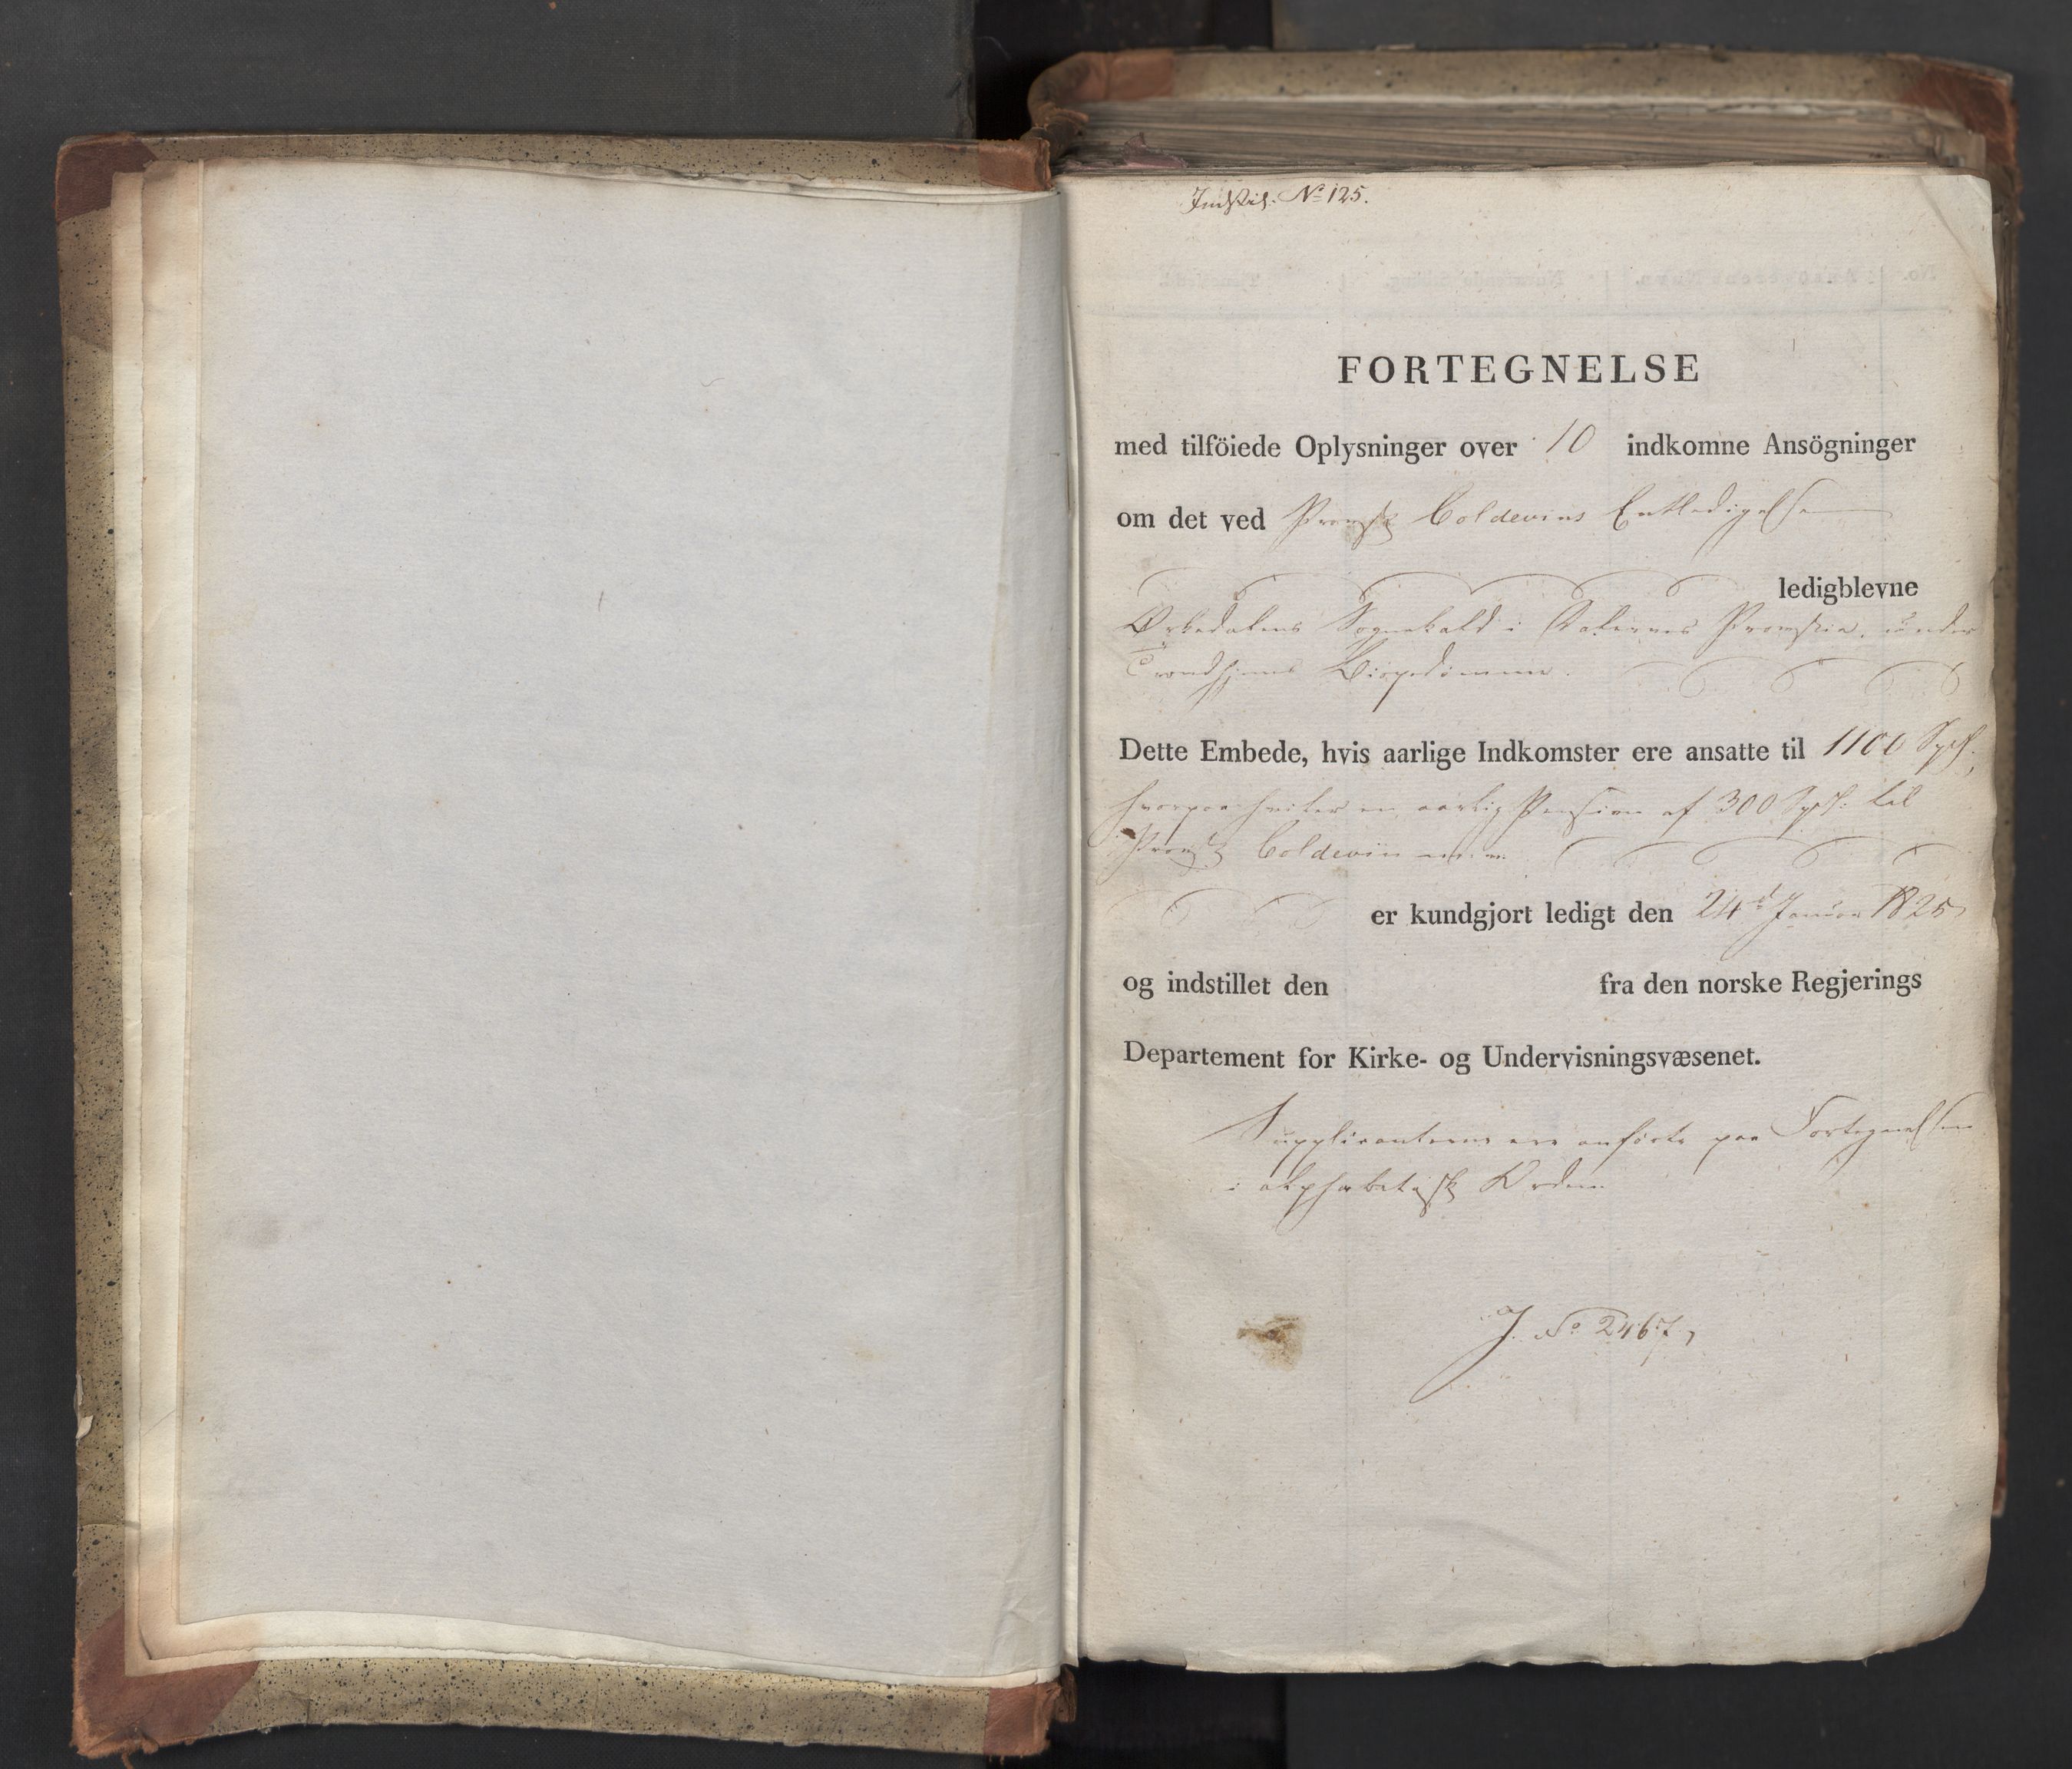 Indstil: No 125.
FORTEGNELSE
med tilföiede Oplysninger over 10 indkomne Ansögninger
om det ved Provst Coldevins Entledigelse
ledigblevne
Orkedalens Sognekald i Dalernes Provstie, under
Trondhjems Bispedömme.
Dette Embede, hvis aarlige Indkomster ere ansatte til 1100 Spd:
hvorpaa hviler en aarlig Pension af 300 Spd: til
Provst Coldevin
er kundgjort ledigt den 24d Januar 1825
og indstillet den fra den norske Regjerings
Departement for Kirke- og Undervisningsvæsenet.
Supplicanterne ere anförte paa Fortegnelsen
i alphabetisk Orden
J. No 2467,